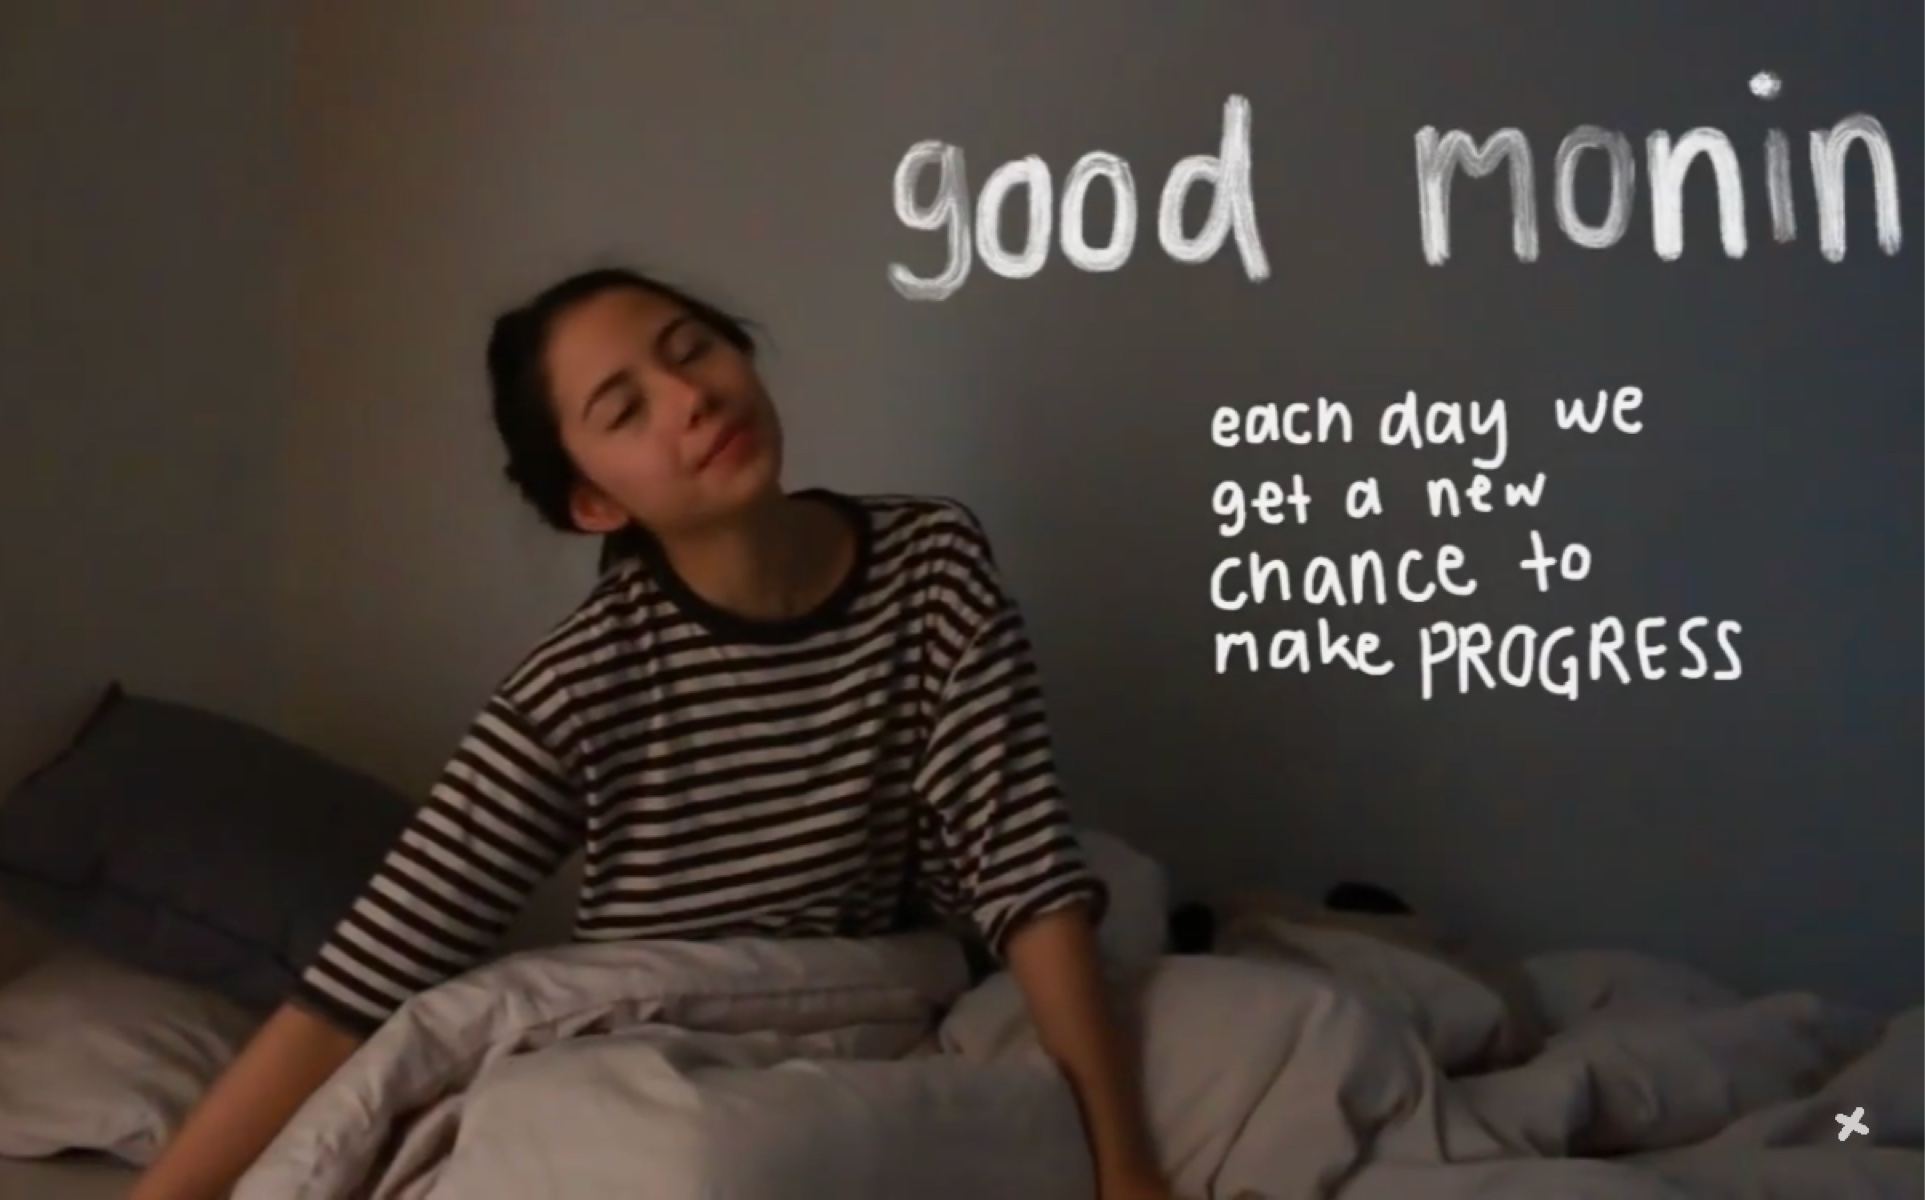 good monin
each day we
get a new
chance to
make PROGRESS